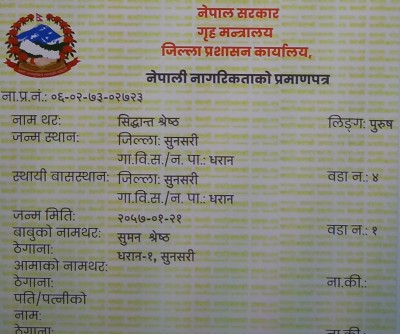 नेपाल सरकार
गृह मन्त्रालय
जिल्ला प्रशासन कार्यालय,
नेपाली नागरिकताको प्रमाणपत्र
ना.प्र.नं.: ०६-०२-७३-०२७२३
नाम थर: सिद्धान्त श्रेष्ठ लिङ्ग: पुरुष
जन्म स्थान: जिल्ला: सुनसरी
गा.वि.स./न. पा.: धरान
स्थायी बासस्थान: जिल्ला: सुनसरी वडा न.: ४
गा.वि.स./न. पा.: धरान
जन्म मिति: २०५७-०१-२१
बाबुको नामथर: सुमन श्रेष्ठ वडा न.: १
ठेगाना: धरान-१, सुनसरी
आमाको नामथर:
ठेगाना: ना.की.:
पति/पत्नीको
नाम:
ठेगाना: ना.की.: